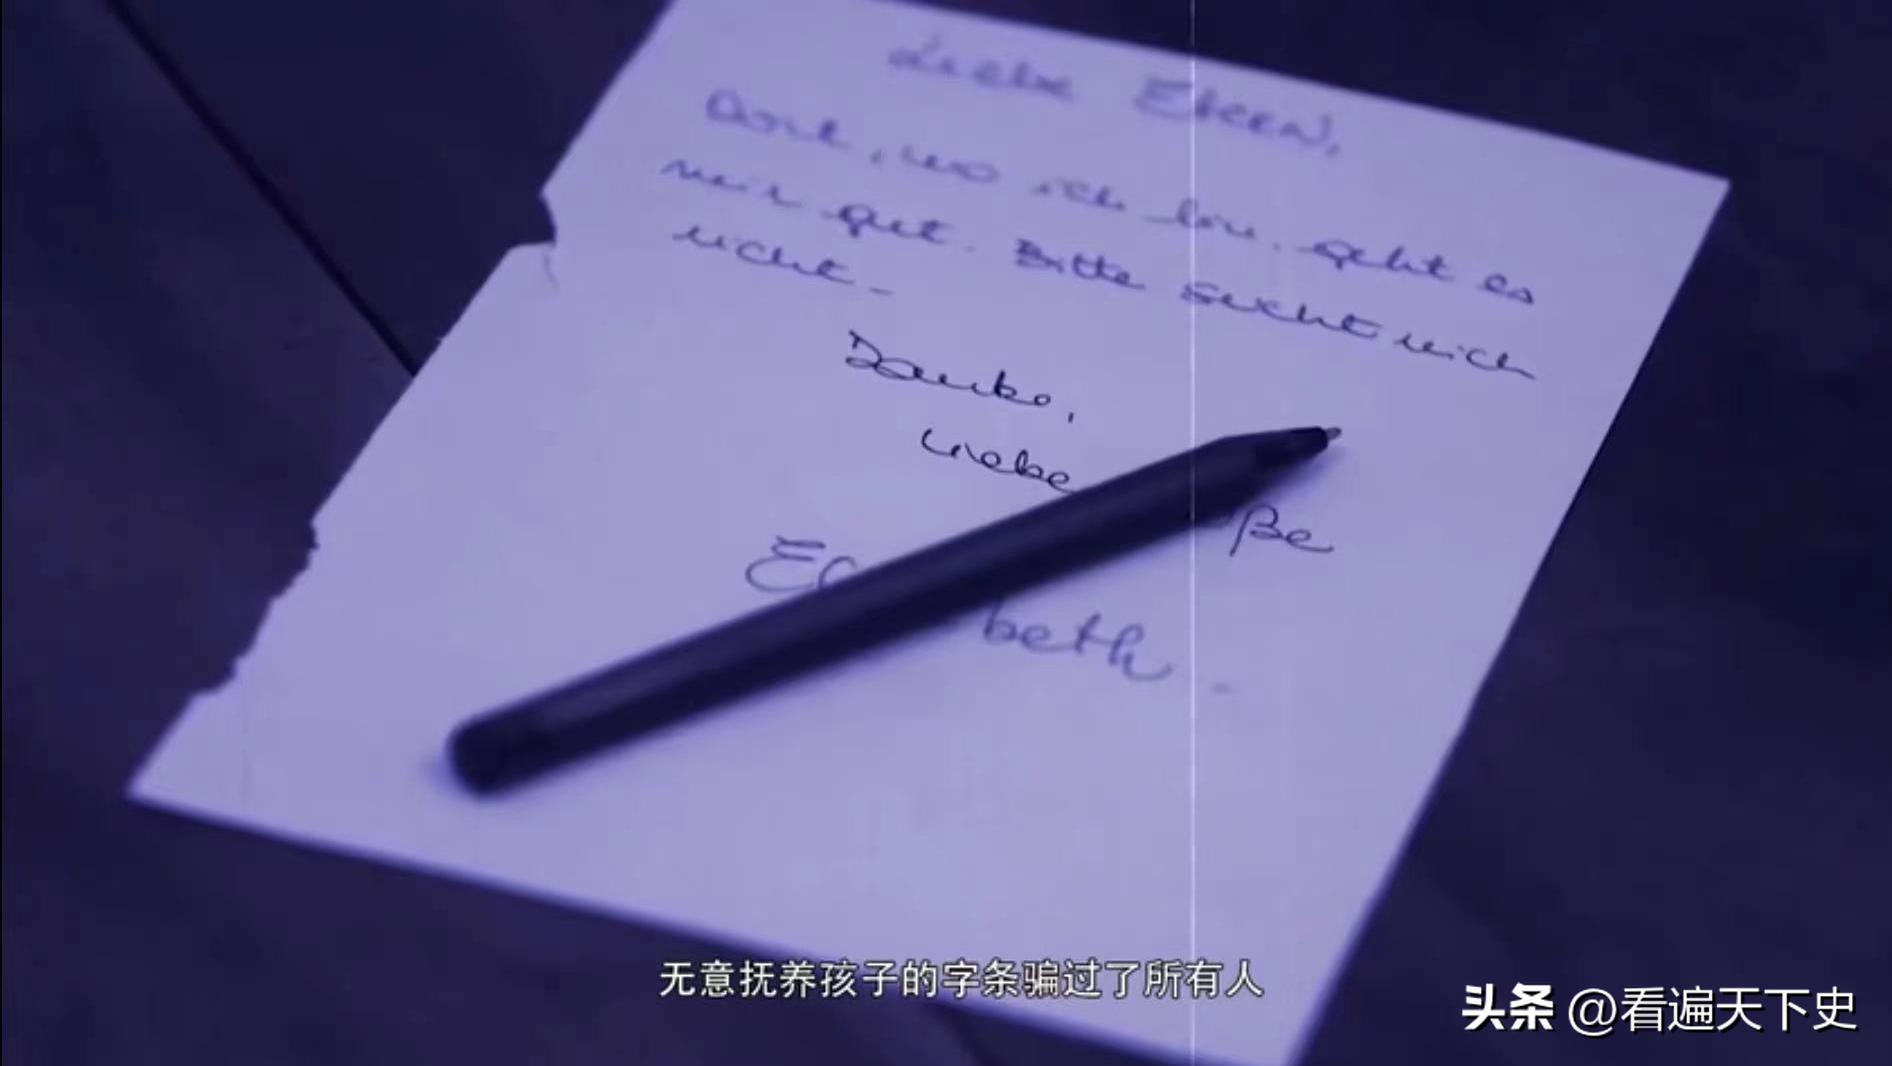 Liebe Eltern,
Dort, wo ich bin, geht es
mir gut. Bitte sucht mich
nicht.
Danke,
Liebe ße
El beth.
无意抚养孩子的字条骗过了所有人
头条 @看遍天下史